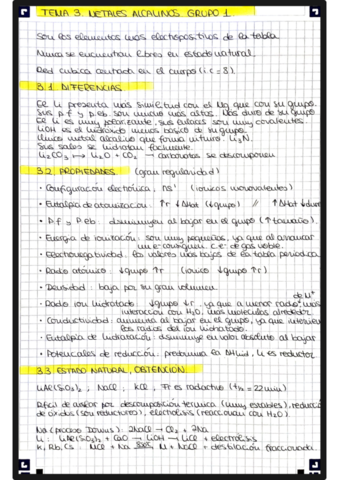 TEMA 3. METALES ALCALINOS. GRUPO 1
Son los elementos más electropositivos de la tabla
Nunca se encuentran libres en estado natural.
Red cúbica centrada en el cuerpo (i.c = 8).
3.1. DIFERENCIAS
El Li presenta más similitud con el Mg que con su grupo.
Sus p.f y p.eb. son mucho más altos. Más duro de su grupo
El Li es muy polarizante, sus enlaces son muy covalentes.
LiOH es el hidróxido menos básico de su grupo.
Único metal alcalino que forma nitruro: Li3N.
Sus sales se hidratan fácilmente
Li2CO3 → Li2O + CO2 → carbonatos se descomponen
3.2. PROPIEDADES (gran regularidad)
· Configuración electrónica: ns¹ (iónicos monovalentes)
· Entalpía de atomización: ↑r ↓ΔHat (↓grupo) // ↑ΔHat ↓dure
· P.f y P.eb: disminuyen al bajar en el grupo (↑tamaño).
· Energía de ionización: son muy pequeños, ya que al arrancar
un e- consiguen C.e- de gas noble.
· Electronegatividad: los valores más bajos de la tabla periódica
· Radio atómico: ↓grupo ↑r (iónico ↓grupo ↑r)
· Densidad: baja por su gran volumen.
· Radio ion hidratado: ↓grupo ↓r, ya que a menor radio de M+ más
interacción con H2O, más moléculas alrededor.
· Conductividad: aumenta al bajar en el grupo, ya que
los radios del ion hidratado.
· Entalpía de hidratación: disminuye en valor absoluto al bajar
· Potenciales de reducción: predomina la ΔHhid, Li es reductor
3.3 ESTADO NATURAL, OBTENCIÓN
LiAl(SiO3)2, NaCl, KCl, Fr es radactivo (t½ = 22min)
Difícil de aislar por descomposición térmica (muy estables), reducció
de óxidos (son reductores), electrólisis (reaccionan con H2O).
Na (proceso Downs): 2NaCl → Cl2 + 2Na
Li: LiAl(SiO3)2 + CaO → LiOH → LiCl + electrólisis
K, Rb, Cs: MCl + Na → M + NaCl + destilación fraccionada